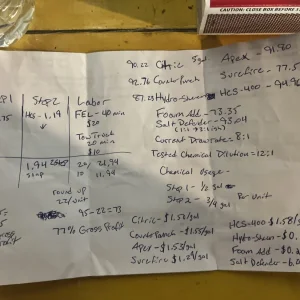 CAUTION: CLOSE BOX BEFORE
90.22 Citric 5gal
92.76 Counter Punch
87.23 Hydro-Sheen
Apex - 91.80
Surefire - 77.5
HCS-400 - 94.96
Foam Add - 73.35
Salt Defender - 93.04
(1:1 → 8:1 gsm)
Current Draw rate = 8:1
Tested Chemical Dilution = 12:1
Chemical usage -
Step 1 - 1/2 gal
Step 2 - 3/4 gal Per Unit
Step 1
.75
Step 2
HCS - 1.19
Labor
FEL - 40 min
$20
Tow Truck
20 min
$10
1.94
soap
20/ 21.94
10 11.94
round up
22/unit
95-22=73
77% Gross Profit
Citric - $1.52/gal
Counter Punch - $1.55/gal
Apex - $1.53/gal
Surefire $1.29/gal
HCS-400 $1.58/
Hydro-Sheen - $0.
Foam Add - $0.2
Salt Defender - 6.2